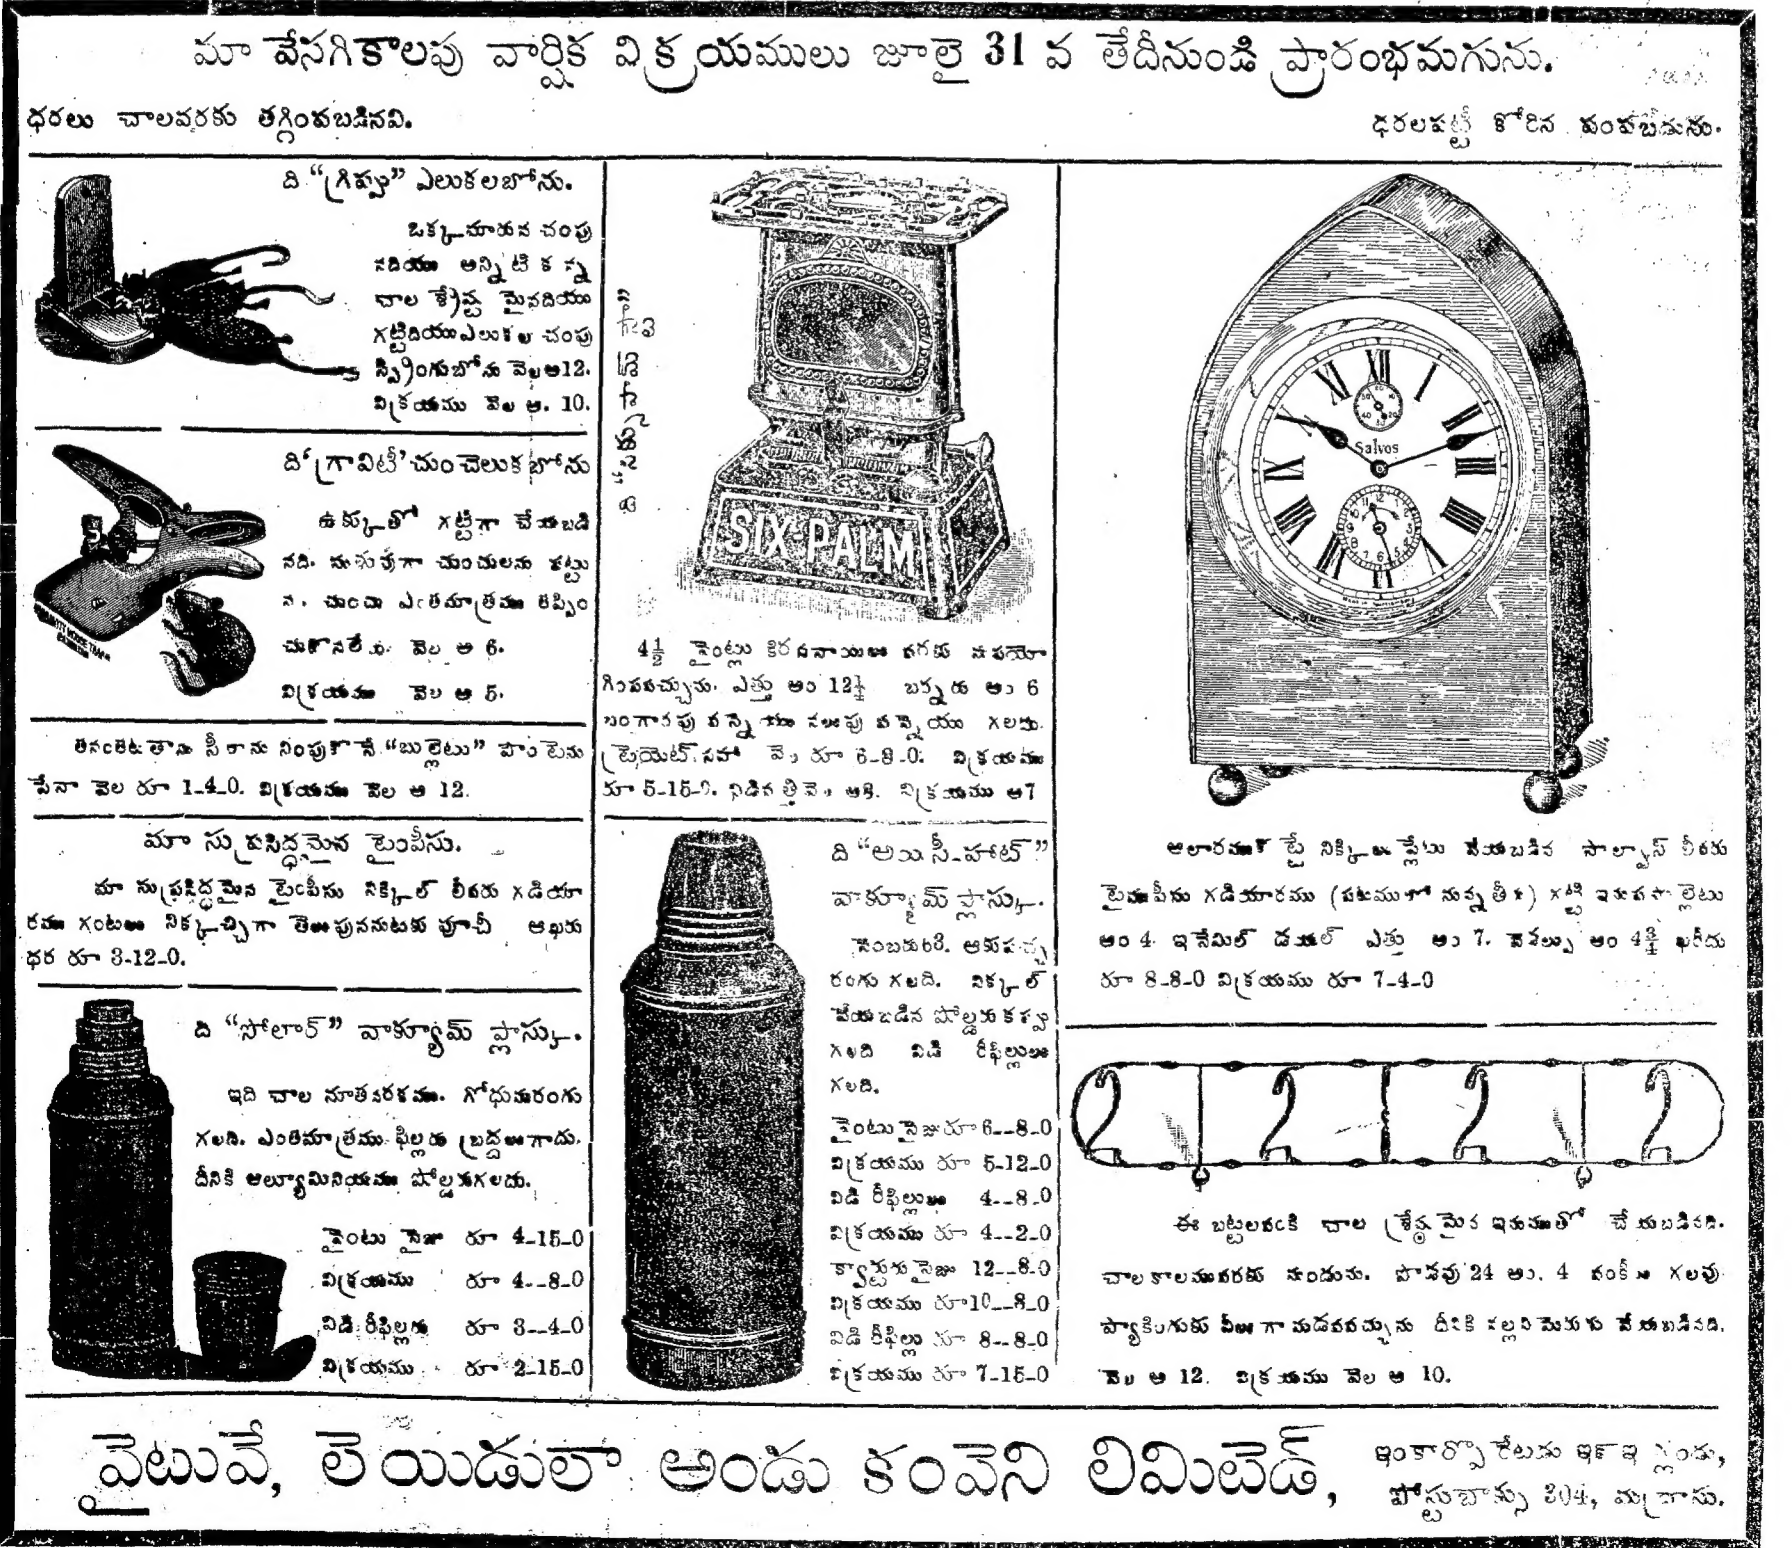 మా వేసగికాలపు వార్షిక విక్రయములు జూలై 31 వ తేదీనుండి ప్రారంభమగును.
ధరలు చాలవరకు తగ్గింపబడినవి.
ధరలపట్టీ కోరిన పంపబడును.
ది “గ్రిప్పు” ఎలుకలబోను.
ఒక్కమారున చంపు
నదియు అన్నిటి కన్న
చాల శ్రేష్ఠ మైనదియు
గట్టిదియు ఎలుకల చంపు
స్ప్రింగుబోను వెల అ12.
విక్రయము వెల అ. 10.
ది ‘గ్రావిటీ’ చుంచెలుక బోను
ఉక్కుతో గట్టిగా చేయబడి
నది. సుళువుగా చుంచులను పట్టు
ను. చుంచు ఎంతమాత్రము తప్పిం
చుకొనలేదు. వెల అ 6.
విక్రయము వెల అ 5.
తనంతట తాను సీరాను నింపుకొనే “బుల్లెటు” ఫౌంటెను
పేనా వెల రూ 1-4-0. విక్రయము వెల అ 12.
మా సుప్రసిద్ధమైన టైంపీసు.
మా సుప్రసిద్ధమైన టైంపీసు నిక్కిల్ లీవరు గడియా
రము గంటలు నిక్కచ్చిగా తెలుపుననుటకు పూచీ ఆఖరు
ధర రూ 3-12-0.
ది “సోలార్” వాక్యూమ్ ఫ్లాస్కు.
ఇది చాల నూతనరకము. గోధుమరంగు
గలది. ఎంతమాత్రము ఫిల్లరు బ్రద్దలుగాదు.
దీనికి అల్యూమినియము హోల్డరుగలదు.
పైంటు సైజు రూ 4-15-0
విక్రయము రూ 4--8-0
విడి రీఫిల్లరు రూ 3--4-0
విక్రయము రూ 2-15-0
ది “సిక్సుపామ్” స్టౌ
SIX-PALM
4½ పైంట్లు కిరసనాయిలు వరకు నుపయో
గింపవచ్చును. ఎత్తు అం 12½ బర్నరు అం 6
బంగారపు వన్నెయు నలుపు వన్నెయు గలదు.
ట్రైయెట్ సహా వెల రూ 6-8-0. విక్రయము
రూ 5-15-0. విడివత్తి వెల అ8. విక్రయము అ7
ది “అయిసీ-హాట్”
వాక్యూమ్ ఫ్లాస్కు.
నెంబరు 63. ఆకుపచ్చ
రంగు గలది. నిక్కల్
చేయబడిన హోల్డరు కప్పు
గలది విడి రీఫిల్లులు
గలది.
పైంటు సైజు రూ 6--8-0
విక్రయము రూ 5-12-0
విడి రీఫిల్లులు 4--8-0
విక్రయము రూ 4--2-0
క్వార్టురు సైజు 12--8-0
విక్రయము రూ 10--8-0
విడి రీఫిల్లు రూ 8--8-0
విక్రయము రూ 7-15-0
Salvos
అలారముక్ టై నిక్కిలు ప్లేటు చేయబడిన సాల్వాస్ లీవరు
టైముపీసు గడియారము (పటములో నున్న తీరు) గట్టి ఇనుప పాల్లెటు
అం 4 ఇనేమిల్ డయల్ ఎత్తు అం 7. వెడల్పు అం 4¾ ఖరీదు
రూ 8-8-0 విక్రయము రూ 7-4-0
2 2 2 2
ఈ బట్టలవంకి చాల శ్రేష్ఠమైన ఇనుముతో చేయబడినది.
చాలకాలమువరకు నుండును. పొడవు 24 అం. 4 వంకీలు గలవు
ప్యాకింగుకు వీలుగా మడవవచ్చును దీనికి నల్లని మెరుగు చేయబడినది.
వెల అ 12. విక్రయము వెల అ 10.
వైటువే, లెయిడులా అండు కంపెని లిమిటెడ్,
ఇంకార్పొరేటుడు ఇన్ ఇంగ్లండు,
పోస్టుబాక్సు 304, మద్రాసు.